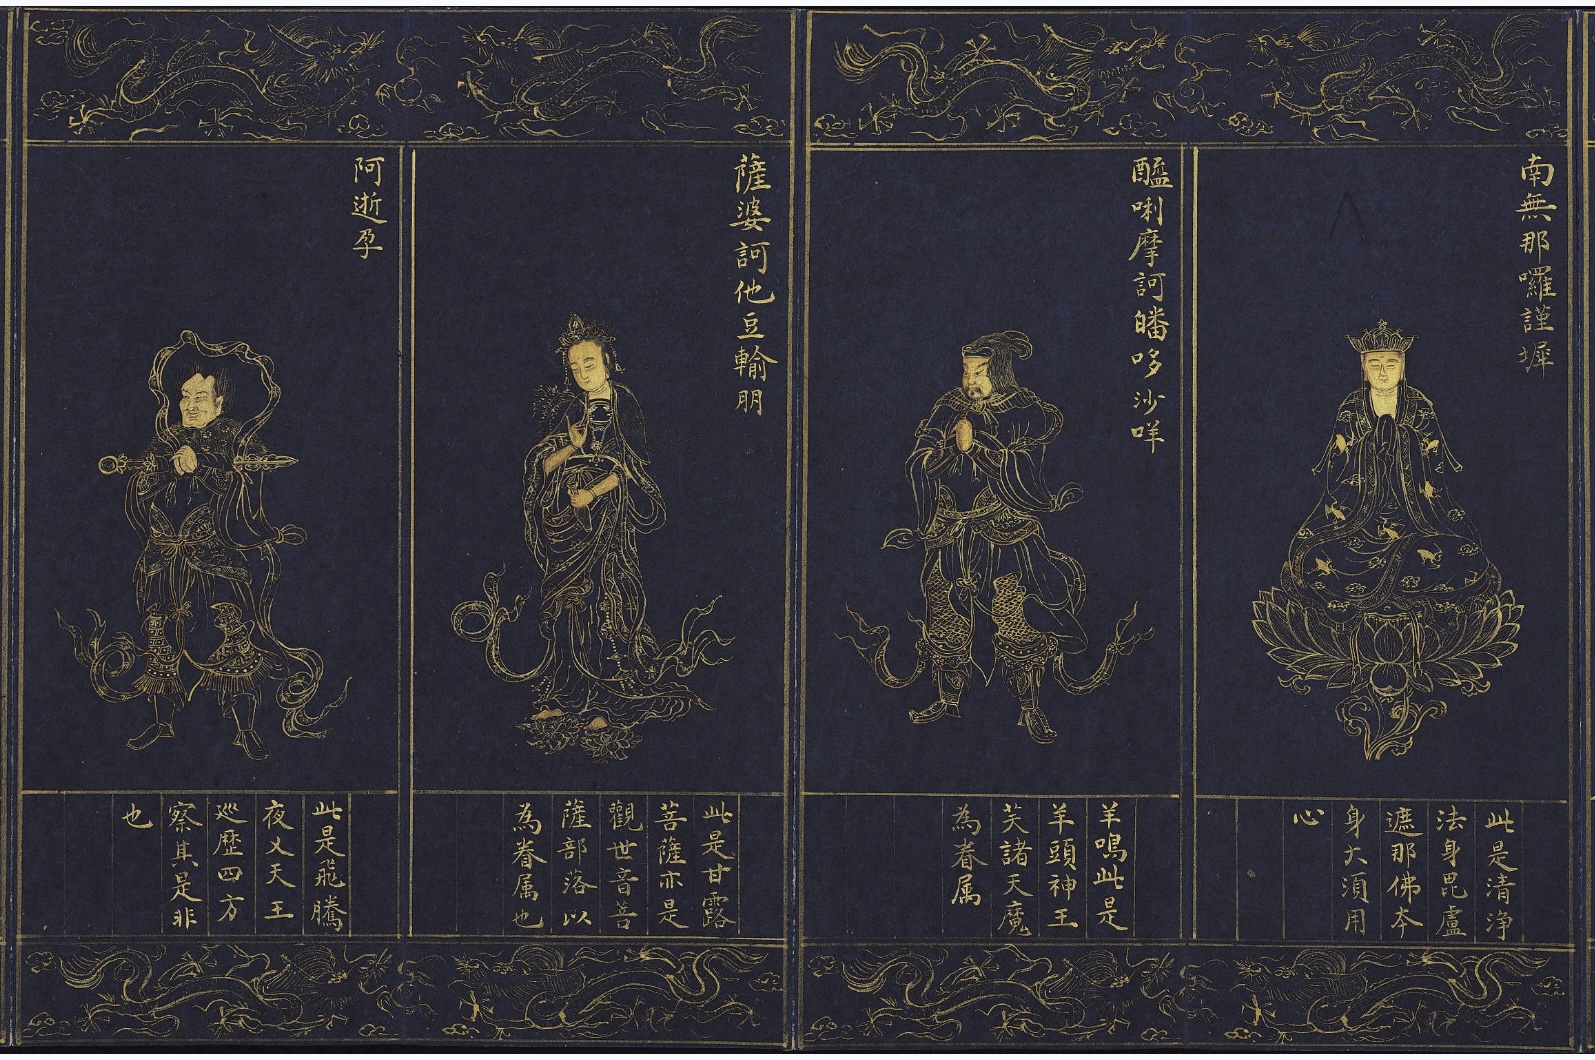 南無那囉謹墀
此是清淨
法身毘盧
遮那佛本
身大湏用
心
醯唎摩訶皤哆沙咩
羊鳴此是
羊頭神王
共諸天魔
為眷属
薩婆訶他豆輸朋
此是甘露
菩薩亦是
觀世音菩
薩部落以
為眷属也
阿逝孕
此是飛騰
夜叉天王
巡歷四方
察其是非
也